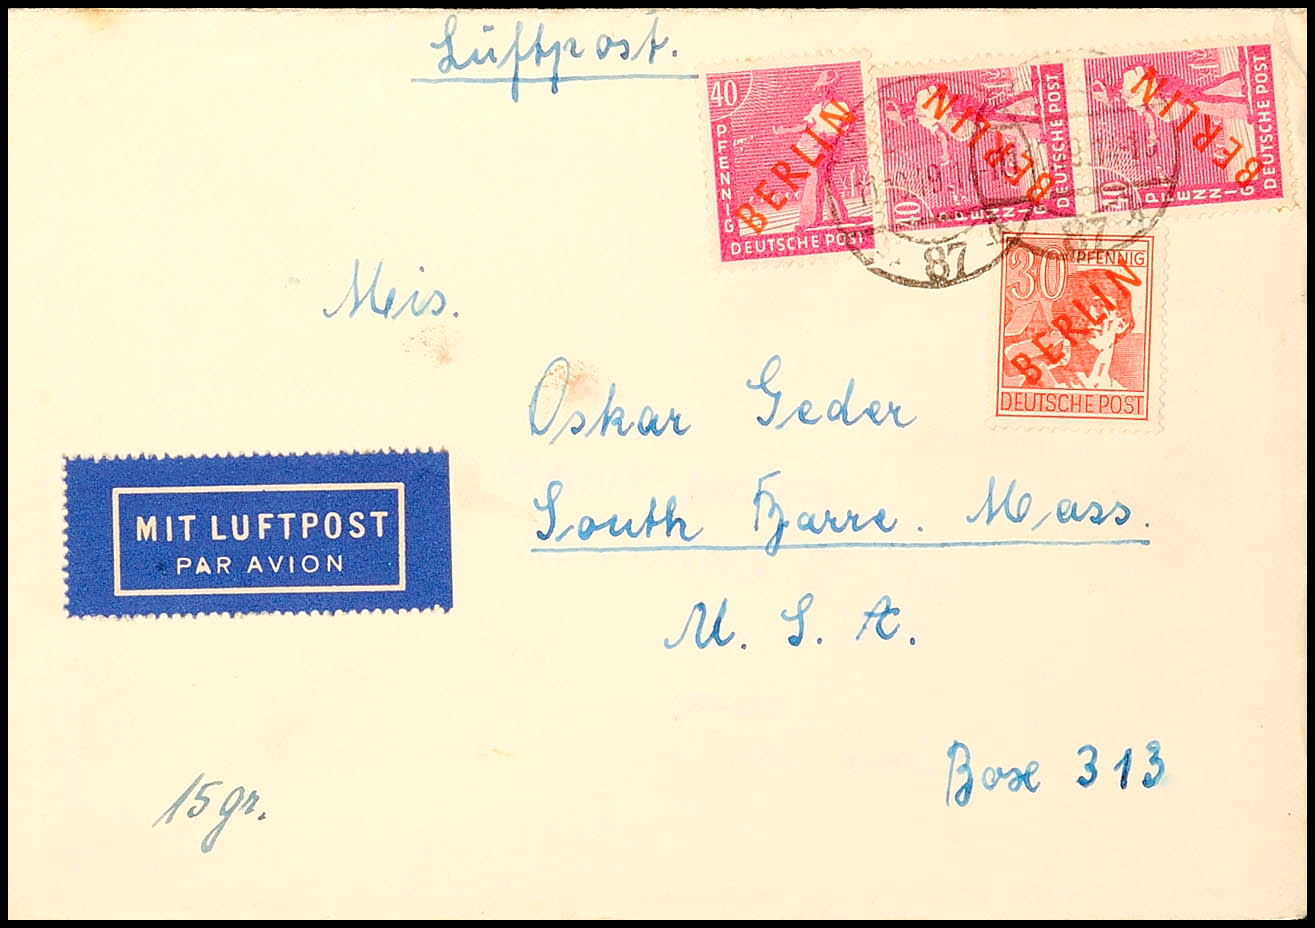 Luftpost.
40
PFENNIG
BERLIN
DEUTSCHE POST
40
PFENNIG
BERLIN
DEUTSCHE POST
40
PFENNIG
BERLIN
DEUTSCHE POST
87
87
30 PFENNIG
BERLIN
DEUTSCHE POST
Meis.
Oskar Geder
South Barre. Mass.
U. S. A.
MIT LUFTPOST
PAR AVION
Box 313
15 gr.